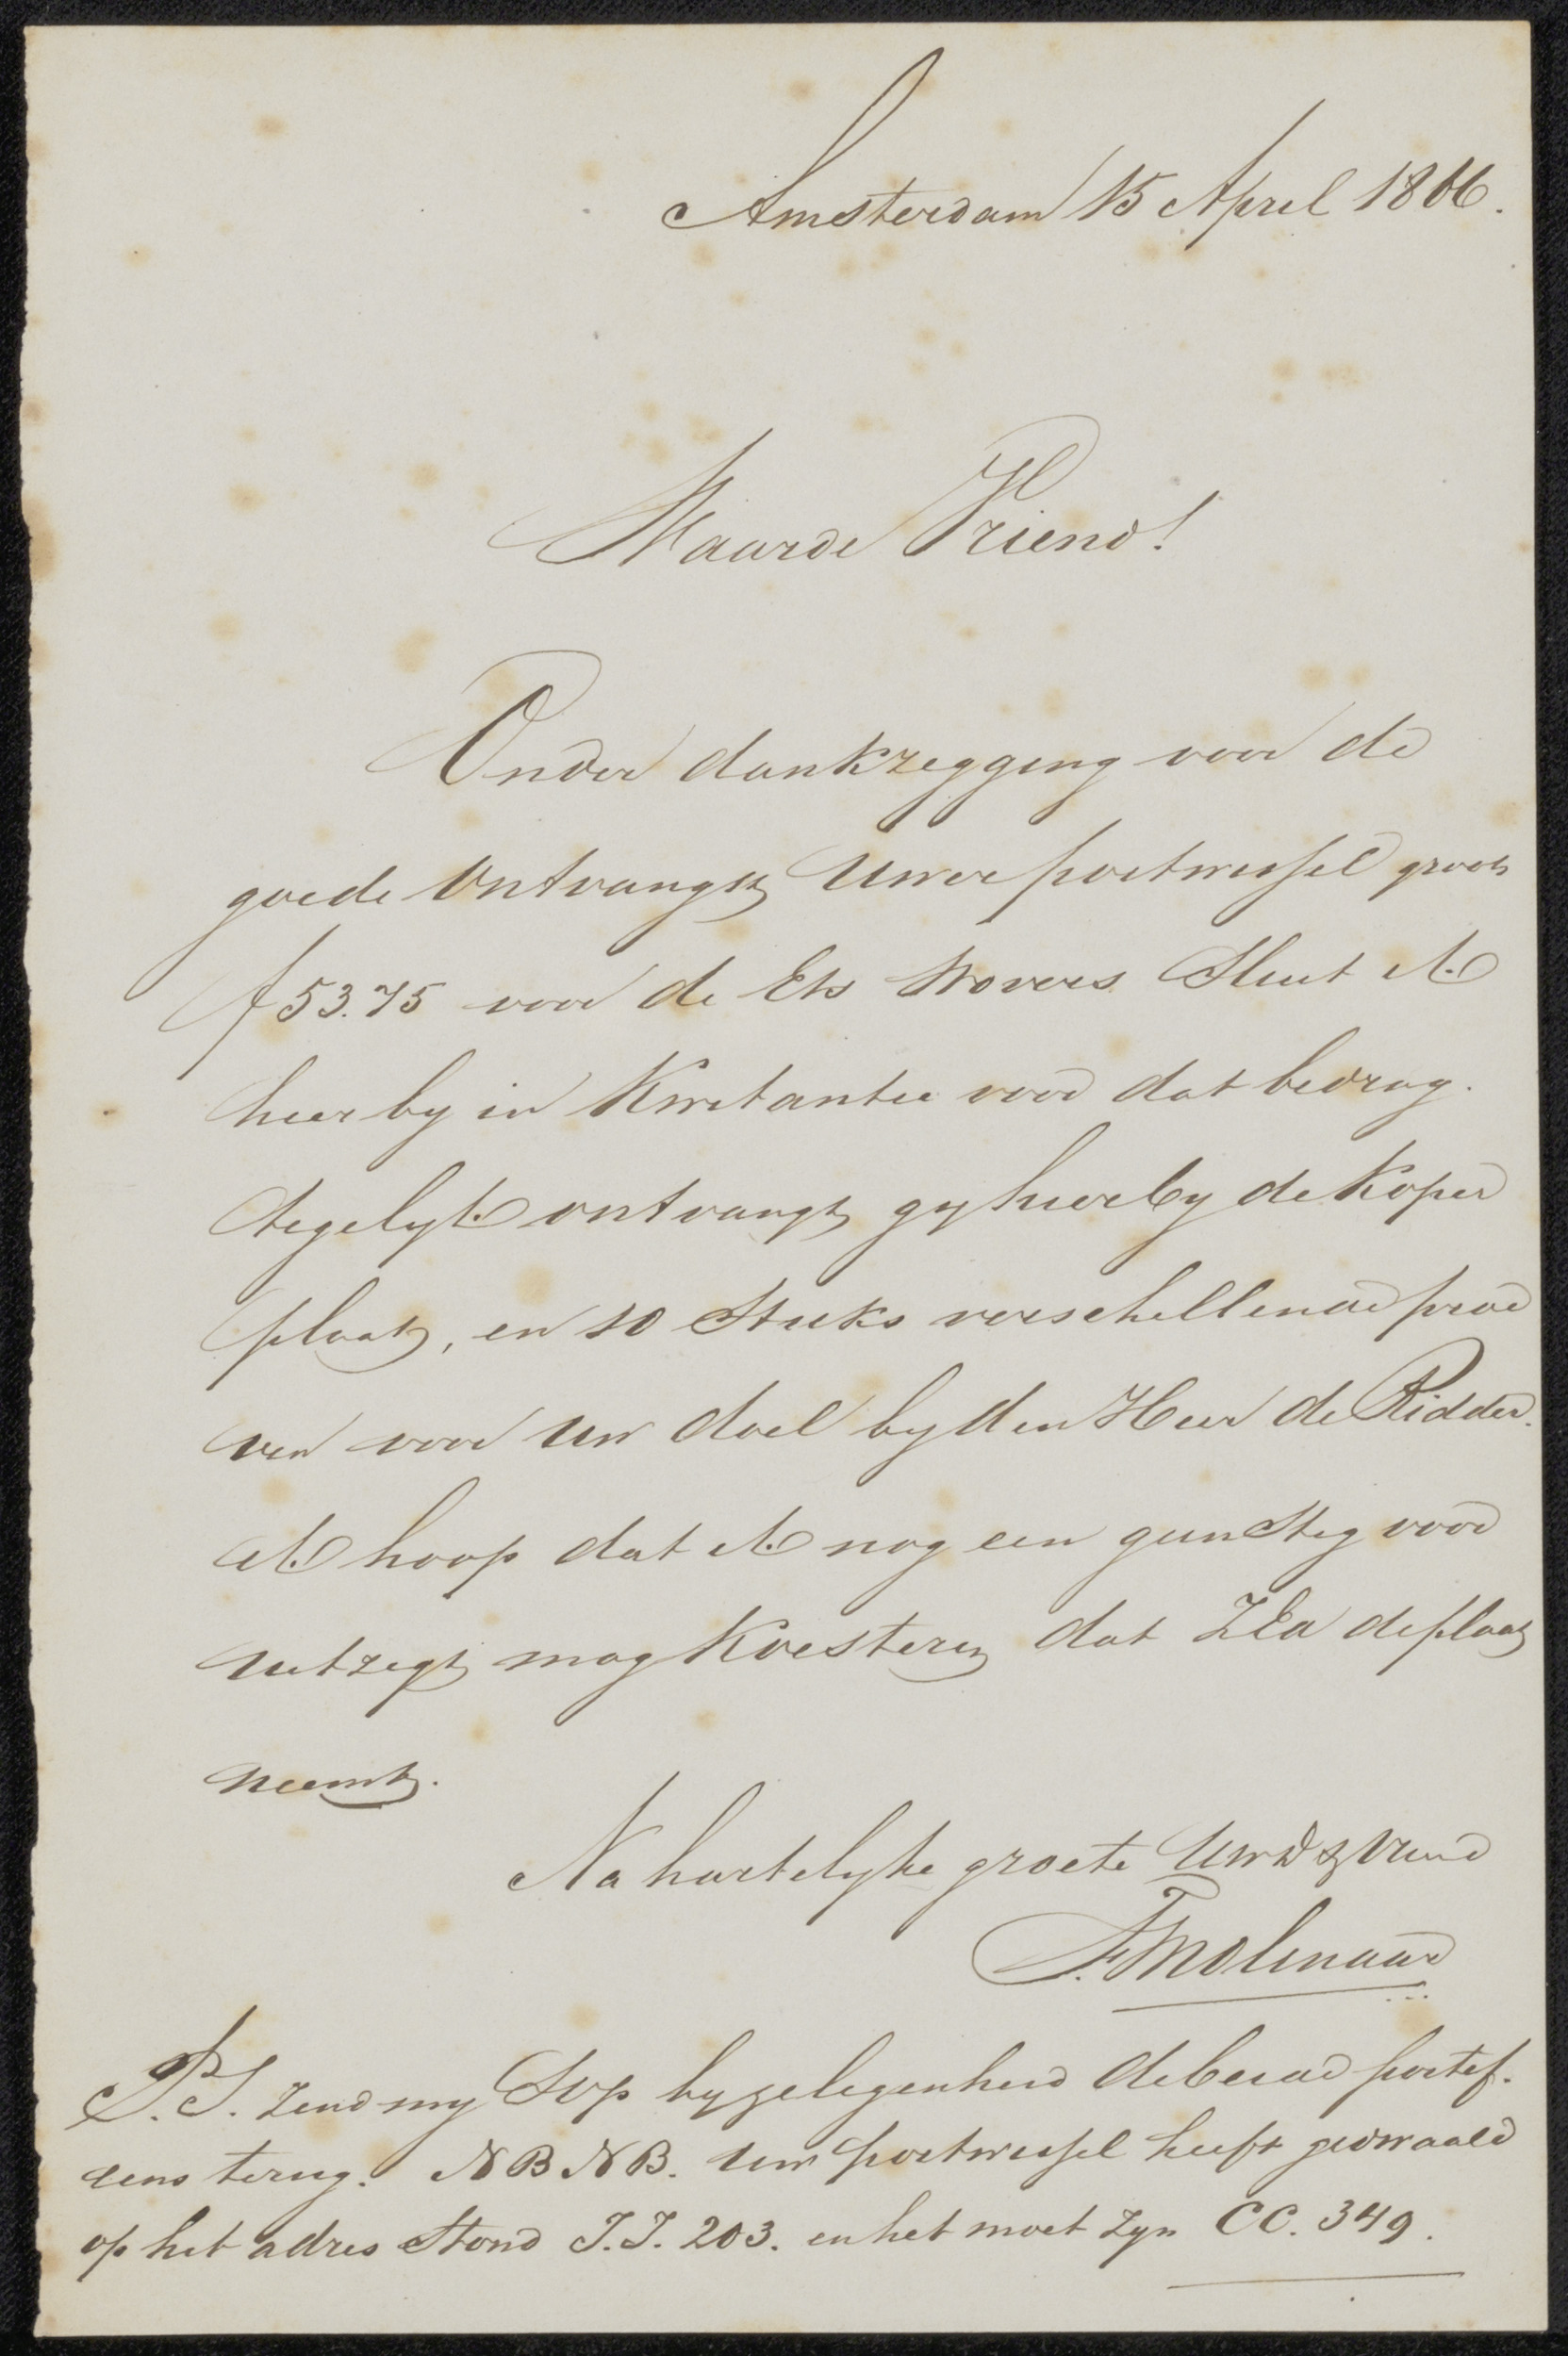 Amsterdam 15 April 1866.
Waarde Vriend!
Onder dankzegging voor de
goede ontvangst Uwer postwissel groot
f 53.75 voor de Ets Sluit ik
hier by in Kwitantie voor dat bedrag.
tegelyk ontvangt gy hierby de Koper
plaat, en 10 Stuks verschillende proe
ven voor uw doel by den Heer de Ridder.
Ik hoop dat ik nog een gunstig voor
uitzigt mag Koesteren dat ZEd de plaat
neemt.
Na hartelyke groete Uw dw Vriend
F. Molenaar
P.S. Zend my Svp by gelegenheid de portef.
eens terug. NB NB. Uw postwissel heeft gedwaald
op het adres Stond J.J. 203. en het moet zyn CC. 349.